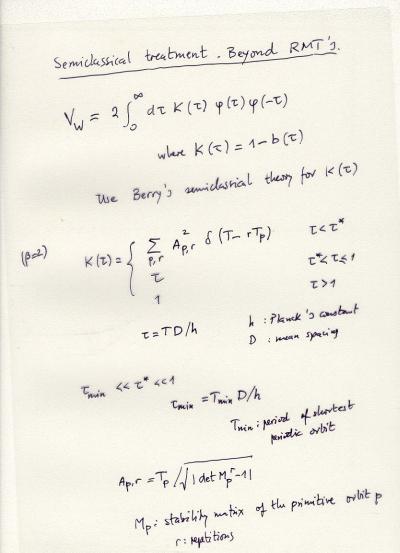 Semiclassical treatment. Beyond RMT's.
V_W = 2 ∫_0^∞ dτ K(τ) φ(τ) φ(-τ)
where K(τ) = 1 - b(τ)
Use Berry's semiclassical theory for K(τ)
(β=2) K(τ) = { Σ_{p,r} A²_{p,r} δ(T - rT_p) τ < τ*
τ τ* < τ ≤ 1
1 τ > 1
τ = TD/h h : Planck's constant
D : mean spacing
τ_min << τ* << 1
τ_min = T_min D/h
T_min : period of shortest
periodic orbit
A_{p,r} = T_p / √|det M_p^r - 1|
M_p : stability matrix of the primitive orbit p
r : repetitions